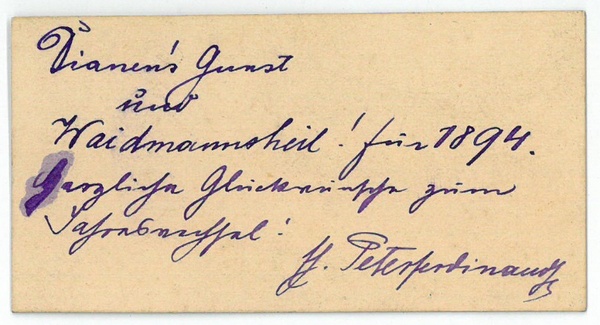 Dianen's Gunst
und
Waidmannsheil! für 1894.
Herzliche Glückwünsche zum
Jahreswechsel!
Peterferdinand